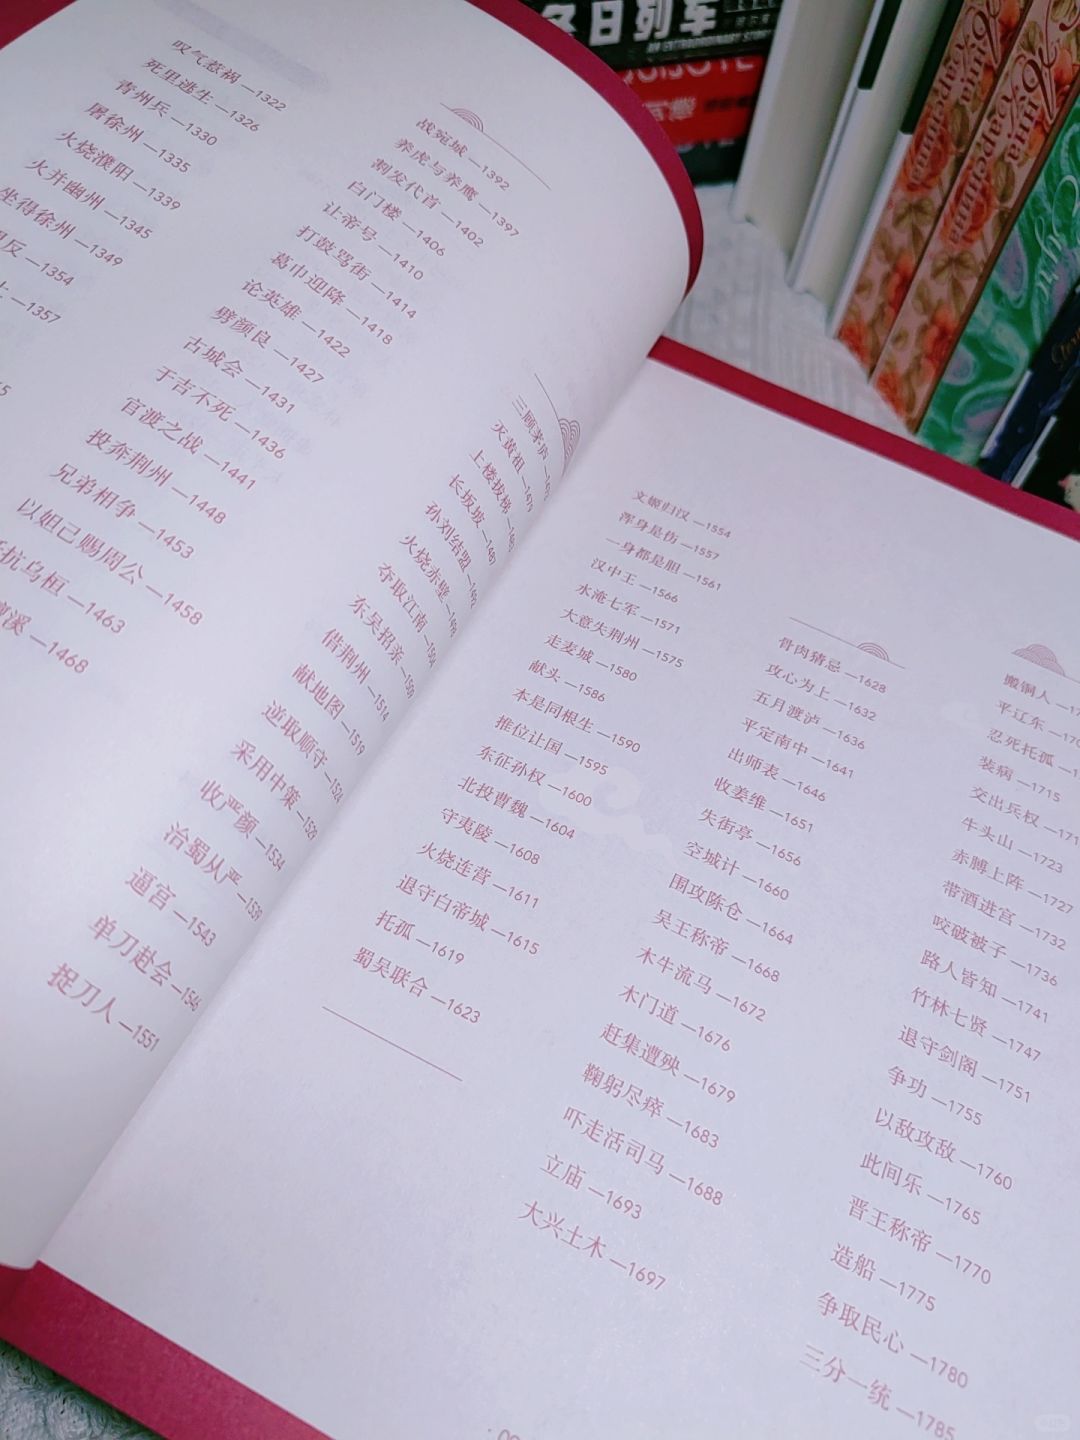 叹气惹祸 —1322
死里逃生 —1326
青州兵 —1330
屠徐州 —1335
火烧濮阳 —1339
火并幽州 —1345
坐得徐州 —1349
反 —1354
—1357
战宛城 —1392
养虎与养鹰 —1397
割发代首 —1402
白门楼 —1406
让帝号 —1410
打鼓骂街 —1414
葛巾迎降 —1418
论英雄 —1422
劈颜良 —1427
古城会 —1431
于吉不死 —1436
官渡之战 —1441
投奔荆州 —1448
兄弟相争 —1453
以妲己赐周公 —1458
抗乌桓 —1463
溪 —1468
三顾茅庐
灭黄祖 —1479
上楼拔梯
长坂坡 —1487
孙刘结盟
火烧赤壁 —1498
夺取江南 —1504
东吴招亲 —1509
借荆州 —1514
献地图 —1519
逆取顺守 —1524
采用中策 —1530
收严颜 —1534
治蜀从严 —1539
逼宫 —1543
单刀赴会 —1546
捉刀人 —1551
文姬归汉 —1554
浑身是伤 —1557
一身都是胆 —1561
汉中王 —1566
水淹七军 —1571
大意失荆州 —1575
走麦城 —1580
献头 —1586
本是同根生 —1590
推位让国 —1595
东征孙权 —1600
北投曹魏 —1604
守夷陵 —1608
火烧连营 —1611
退守白帝城 —1615
托孤 —1619
蜀吴联合 —1623
骨肉猜忌 —1628
攻心为上 —1632
五月渡泸 —1636
平定南中 —1641
出师表 —1646
收姜维 —1651
失街亭 —1656
空城计 —1660
围攻陈仓 —1664
吴王称帝 —1668
木牛流马 —1672
木门道 —1676
赶集遭殃 —1679
鞠躬尽瘁 —1683
吓走活司马 —1688
立庙 —1693
大兴土木 —1697
搬铜人
平辽东
忍死托孤
装病 —1715
交出兵权
牛头山 —1723
赤膊上阵 —1727
带酒进宫 —1732
咬破被子 —1736
路人皆知 —1741
竹林七贤 —1747
退守剑阁 —1751
争功 —1755
以敌攻敌 —1760
此间乐 —1765
晋王称帝 —1770
造船 —1775
争取民心 —1780
三分一统 —1785
冬日列车
AN EXTRAORDINARY STORY